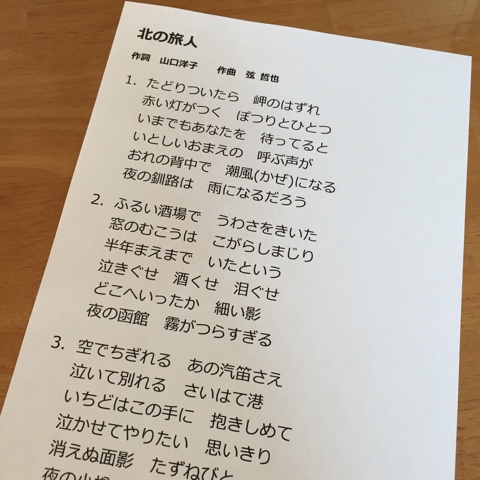 北の旅人
作詞　山口洋子　　作曲　弦 哲也
1. たどりついたら　岬のはずれ
赤い灯がつく　ぽつりとひとつ
いまでもあなたを　待ってると
いとしいおまえの　呼ぶ声が
おれの背中で　潮風(かぜ)になる
夜の釧路は　雨になるだろう
2. ふるい酒場で　うわさをきいた
窓のむこうは　こがらしまじり
半年まえまで　いたという
泣きぐせ　酒くせ　泪ぐせ
どこへいったか　細い影
夜の函館　霧がつらすぎる
3. 空でちぎれる　あの汽笛さえ
泣いて別れる　さいはて港
いちどはこの手に　抱きしめて
泣かせてやりたい　思いきり
消えぬ面影　たずねびと
夜の小樽